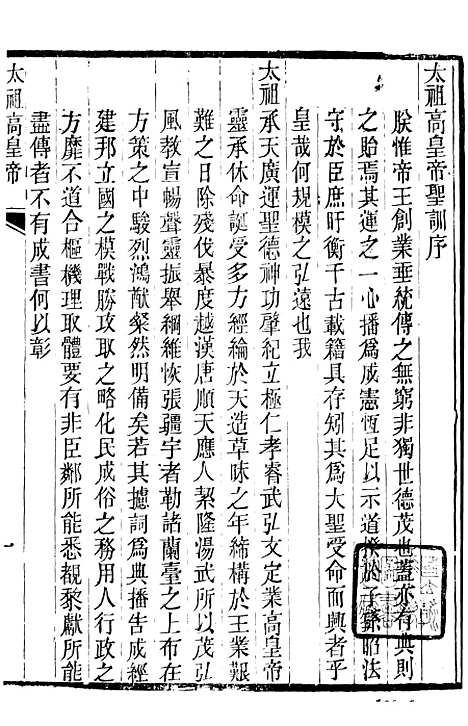 太祖高皇帝聖訓序
朕惟帝王創業垂統傳之無窮非獨世德茂也蓋亦有典則
之貽焉其運之一心播為成憲恆足以示道揆於子孫昭法
守於臣庶盱衡千古載籍具存矧其為大聖受命而興者乎
皇哉何規模之弘遠也我
太祖承天廣運聖德神功肇紀立極仁孝睿武弘文定業高皇帝
靈承休命誕受多方經綸於天造草昧之年締構於王業艱
難之日除殘伐暴度越漢唐順天應人絜隆湯武所以茂弘
風教宣暢聲靈振舉綱維恢張疆宇者勒諸蘭臺之上布在
方策之中駿烈鴻猷粲然明備矣若其攄詞為典播告成經
建邦立國之模戰勝攻取之略化民成俗之務用人行政之
方靡不道合樞機理取體要有非臣鄰所能悉覩黎獻所能
盡傳者不有成書何以彰
太祖高皇帝